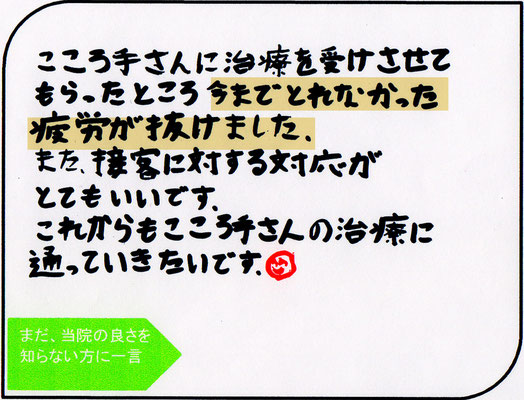 こころ手さんに治療を受けさせて
もらったところ今までとれなかった
疲労が抜けました。
また、接客に対する対応が
とてもいいです。
これからもこころ手さんの治療に
通っていきたいです。
まだ、当院の良さを
知らない方に一言